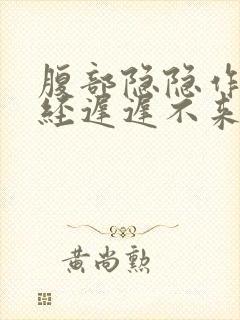 腹部隐隐作
经迟迟不来
黄尚勲